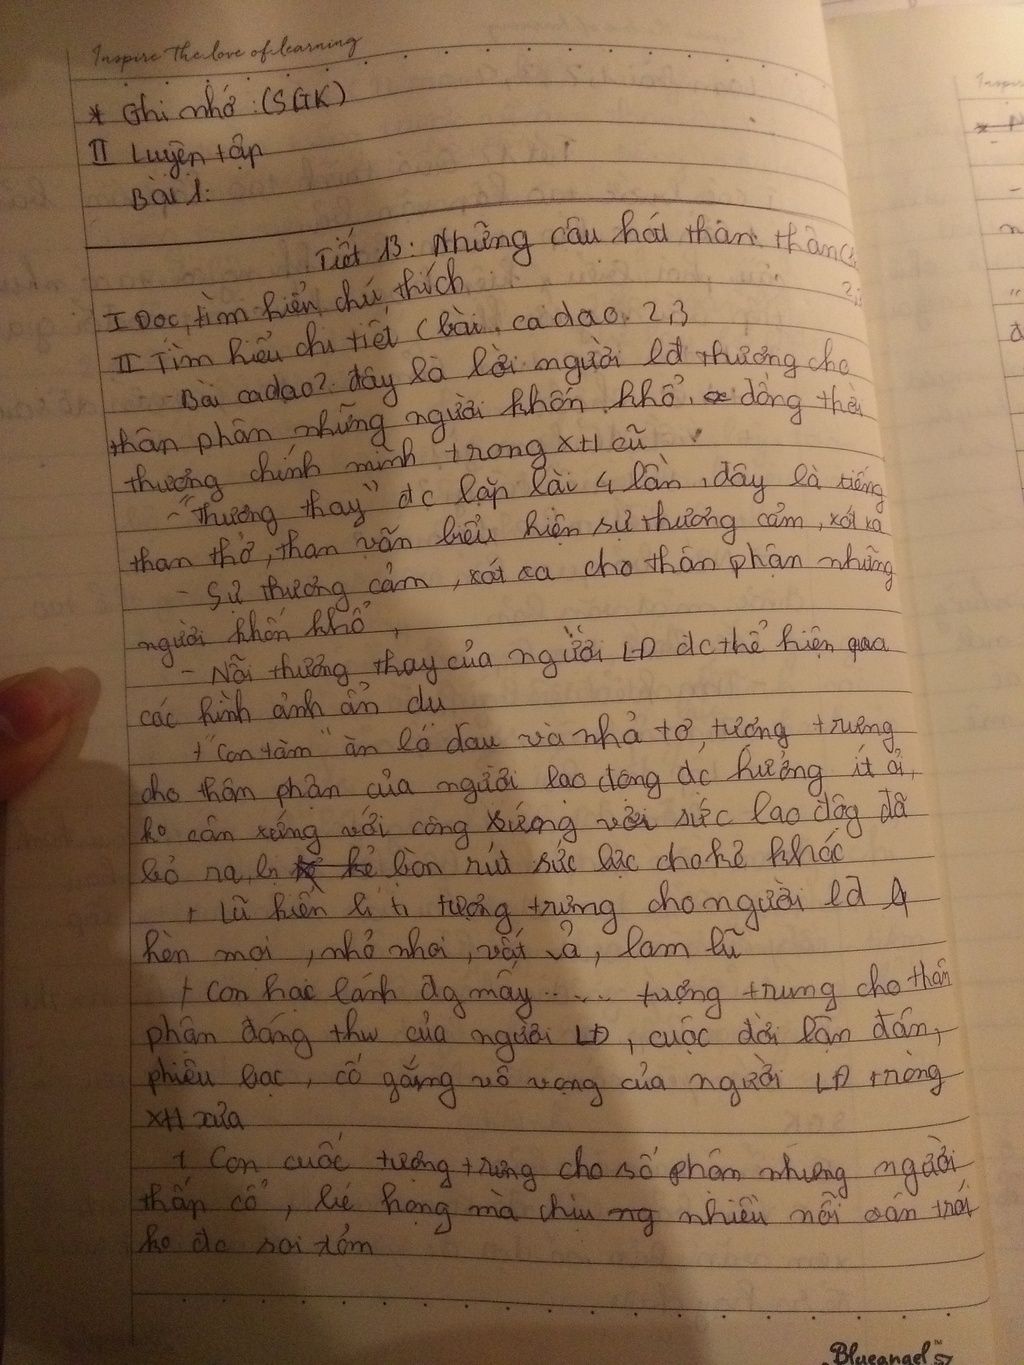 Inspire the love of learning
* Ghi nhớ : (SGK)
II Luyện tập
Bài 1:
Tiết 13: Những câu hát than thân
I Đọc, tìm hiển chú thích
II Tìm hiểu chi tiết (bài ca dao 2,3
Bài ca dao 2: đây là lời người lđ thương cho
thân phận những người khốn khổ, đồng thời
thương chính mình trong XH cũ
- "Thương thay" đc lặp lài 4 lần, đây là tiếng
than thở, than vãn biểu hiện sự thương cảm, xót xa
- Sự thương cảm, xót xa cho thân phận những
người khốn khổ,
- Nỗi thương thay của người LĐ đc thể hiện qua
các hình ảnh ẩn dụ
+ "Con tằm" ăn lá dâu và nhả tơ, tượng trưng
cho thân phận của người lao động đc hưởng ít ỏi,
ko cân xứng với công xứng với sức lao độg đã
bỏ ra, bị bòn rút sức lực cho kẻ khác
+ Lũ kiến li ti tượng trưng cho người lđ
hèn mọi, nhỏ nhoi, vất vả, lam lũ
+ Con hạc lánh đg mây ..... tượng trưng cho thân
phận đáng thw của người LĐ, cuộc đời lận đấn,
phiêu bạc, cố gắng vô vọng của người LĐ tròng
XH xưa
+ Con cuốc tượng trưng cho số phận nhưng người
thấp cổ, bé họng mà chịu ng nhiều nỗi oán trái
ko đc soi tỏm
Blueangel™ 57
Inspir